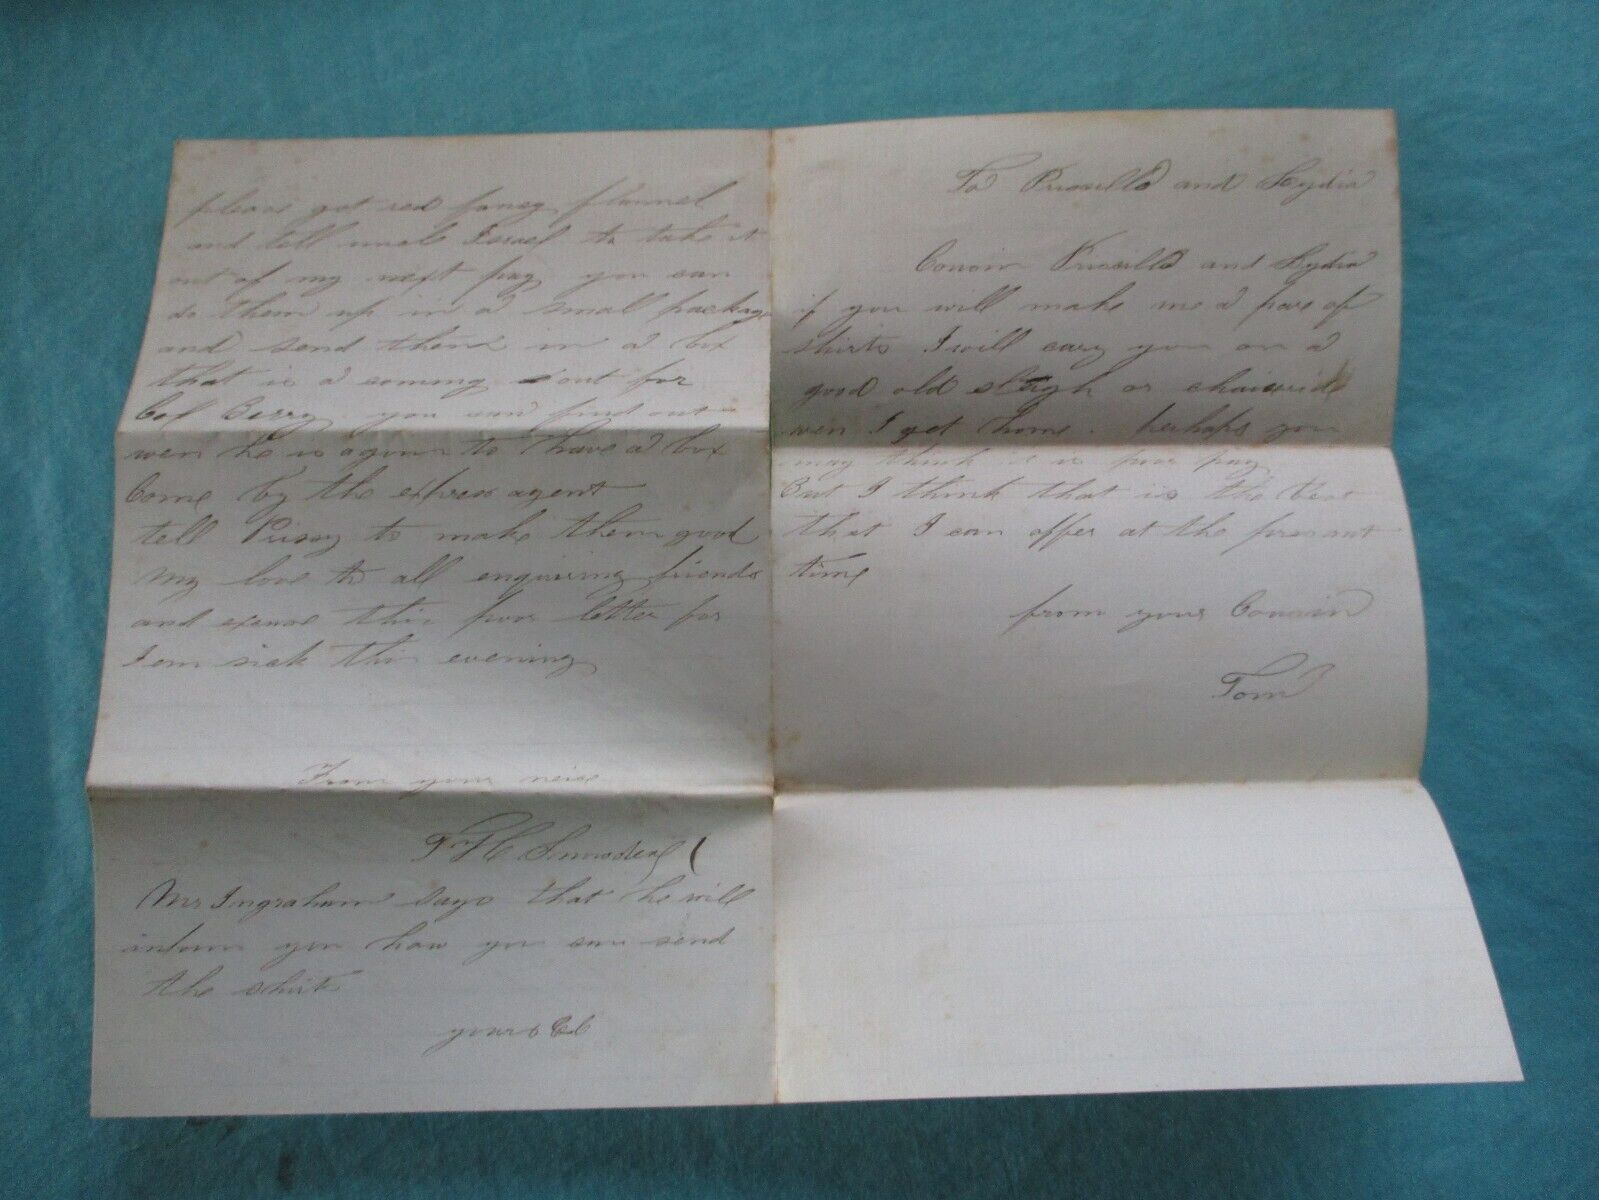 please get red fancy flannel
and tell uncle Israel to take it
out of my next pay you can
do them up in a small package
and send them in a box
that is a coming out for
Col Berry. you can find out
wen he is agoun to have a box
Come by the express agent
tell Prissy to make them good
My love to all enquiring friends
and excuse this poor letter for
I am sick this evening
From your neise
T H Snowdeal
Mr Ingraham says that he will
inform you how you can send
the shirts
yours &c
To Prissilla and Lydia
Cousin Prissilla and Lydia
if you will make me a pare of
shirts I will cary you on a
good old sleigh or chaise ride
wen I get home. perhaps you
may think it is poor pay
But I think that is the best
that I can offer at the presant
time
from your Cousin
Tom